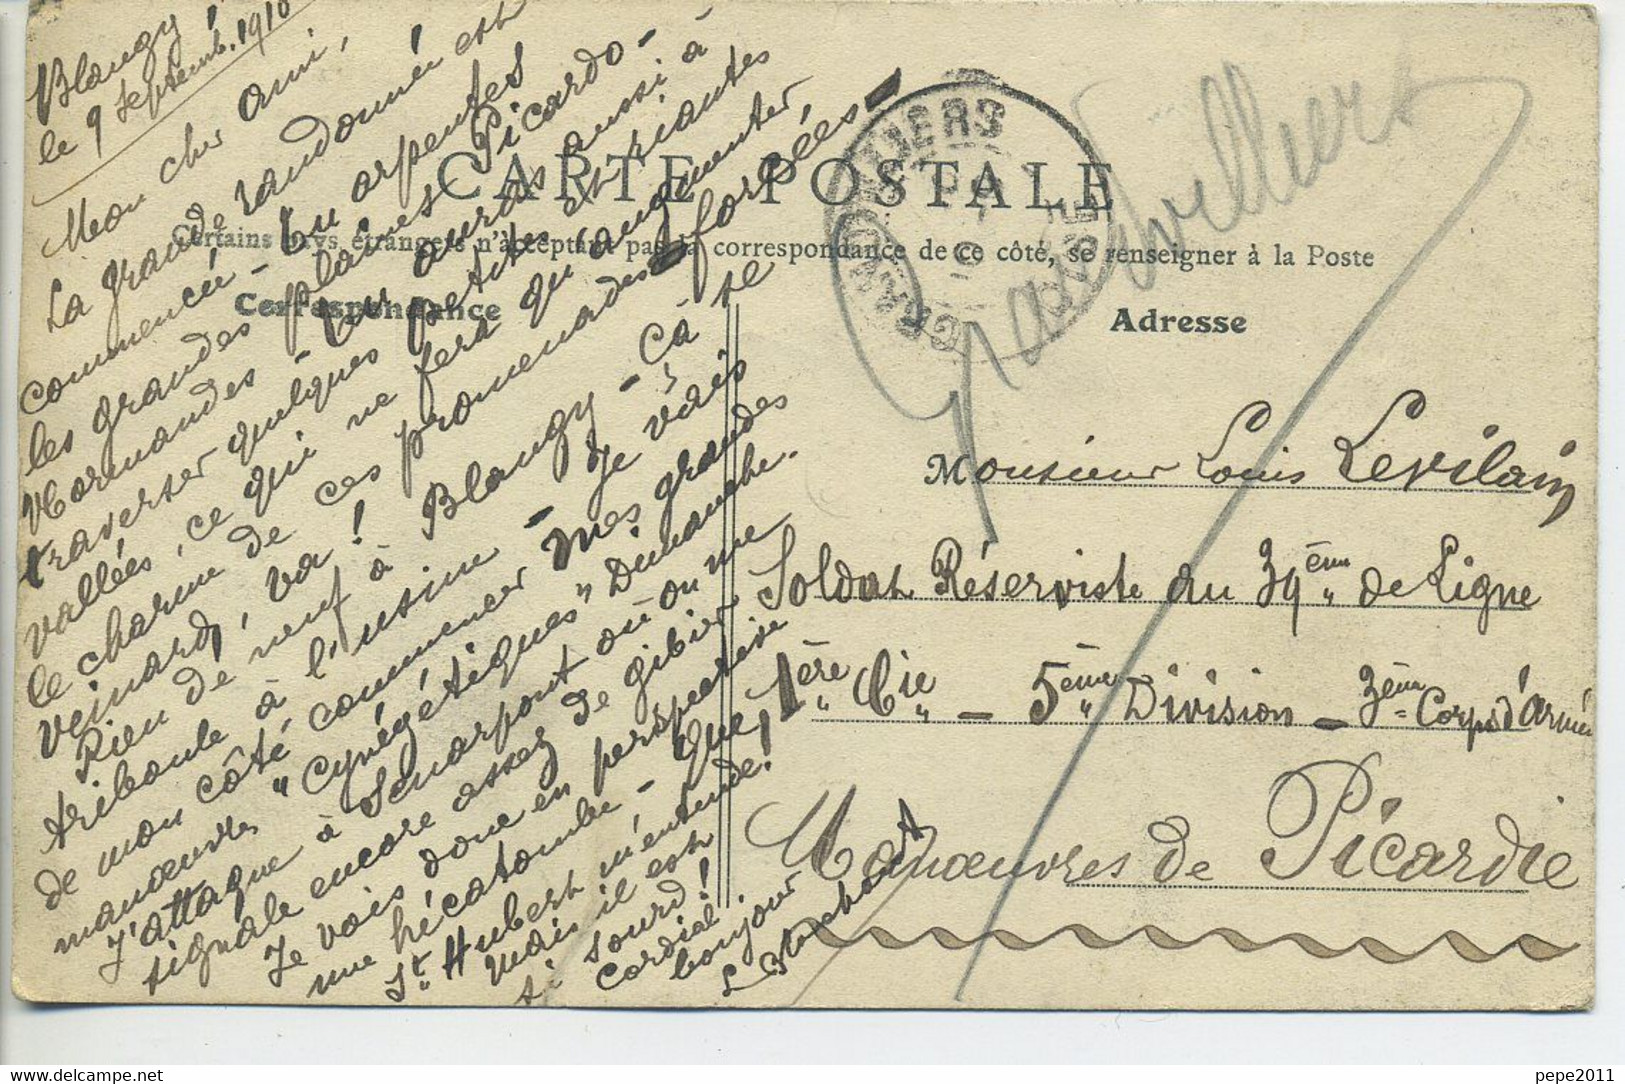 Blangy
le 9 Septemb. 1910
Mon cher ami,
La grande randonnée est
commencée - tu arpentes
les grandes plaines Picardo-
Normandes - tu auras aussi à
traverser quelques petites et riantes
vallées, ce qui ne fera qu'augmenter
le charme de ces promenades forcées -
veinard, va !
Rien de neuf à Blangy - Ça se
triboule à l'usine - Je vais
de mon côté commencer mes grandes
manœuvres "Cynégétiques" Dimanche.
J'attaque à Senarpont où on me
signale encore assez de gibier
Je vois donc en perspective
une hécatombe - Que
St Hubert m'entende !
Mais il est
si sourd !
Cordial
bonjour
CARTE POSTALE
Certains pays étrangers n'acceptant pas la correspondance de ce côté, se renseigner à la Poste
Correspondance
Adresse
GRANDVILLIERS
OISE
Grandvilliers
Monsieur Louis Levilain
Soldat Réserviste au 39ème de Ligne
1ère Cie - 5ème Division - 3ème Corps d'armée
Manœuvres de Picardie
delcampe.net
pepe2011